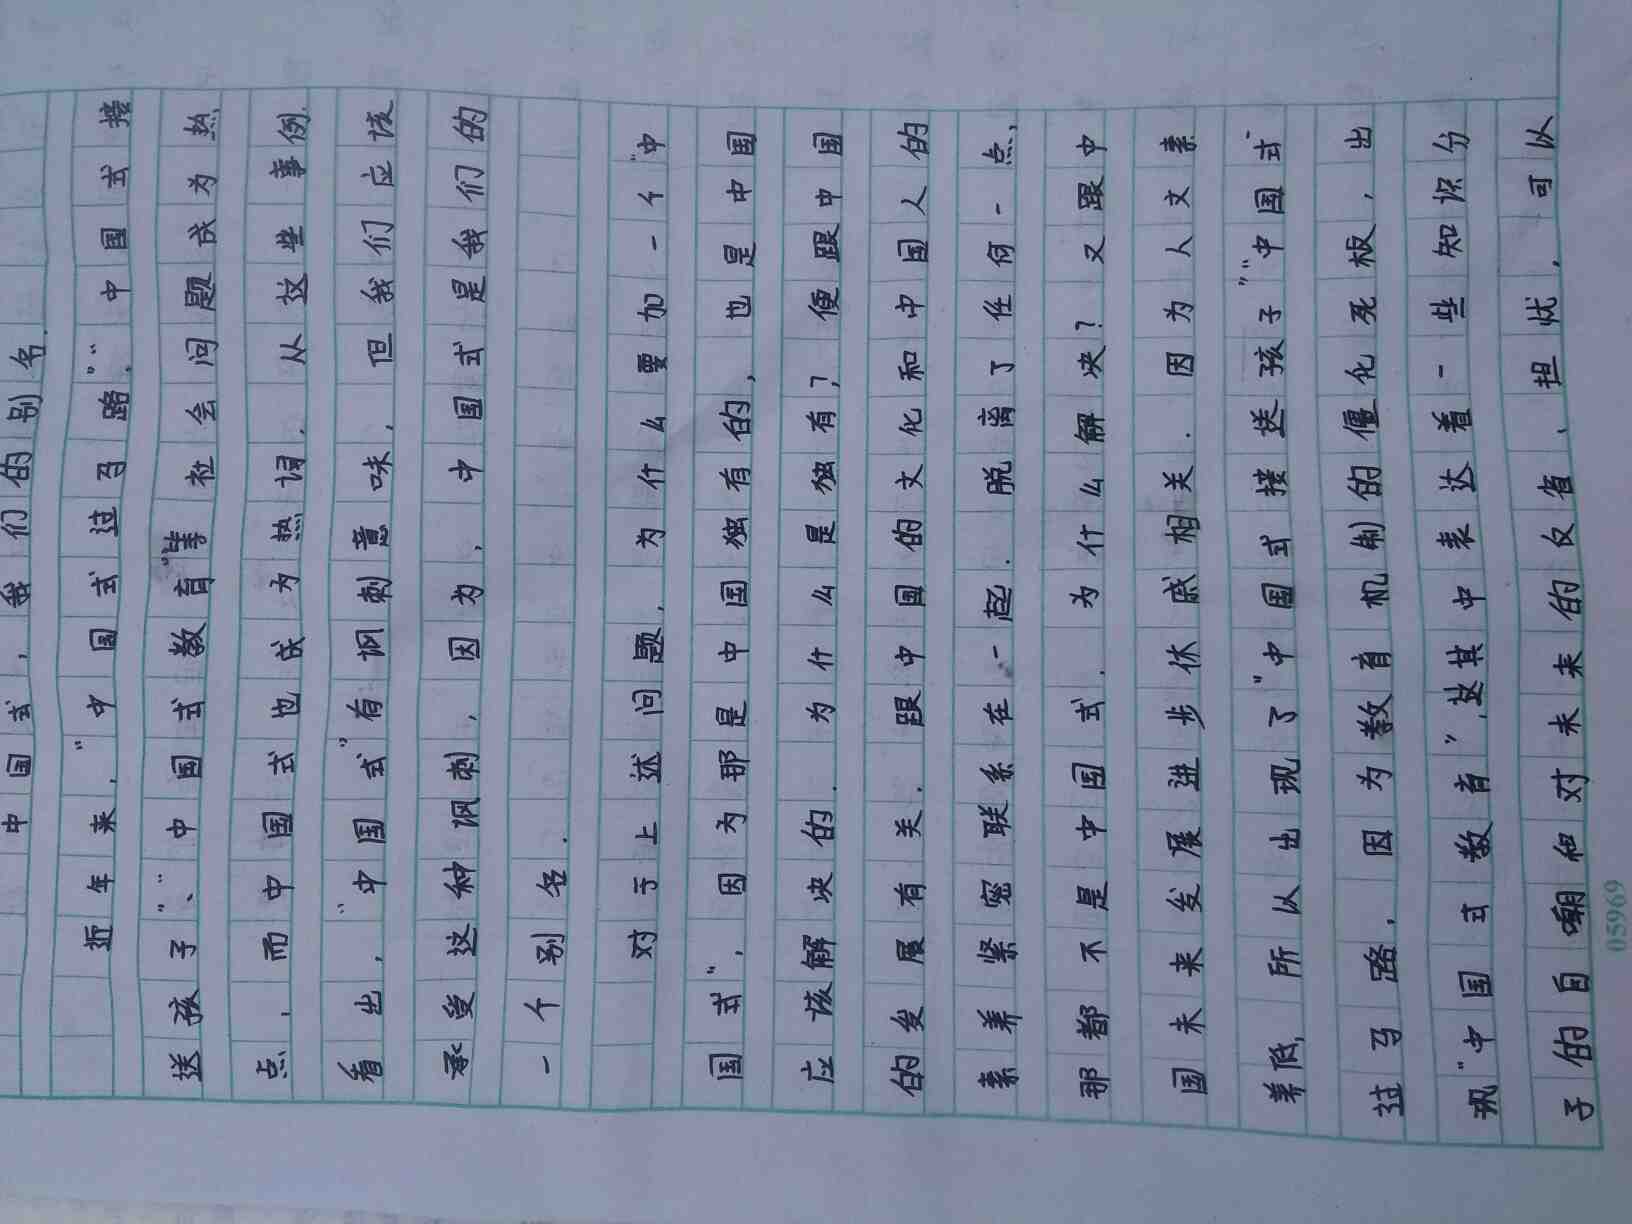 中国式，我们的别名.
近年来，"中国式过马路"."中国式接
送孩子"、"中国式教育"等社会问题成为热
点，而中国式也成为热词.从这些事例
看出，"中国式"有讽刺意味，但我们应该
承受这种讽刺，因为，中国式是我们的
一个别名.
对于上述问题，为什么要加一个"中
国式"，因为那是中国独有的，也是中国
应该解决的.为什么是独有?，便跟中国
的发展有关.跟中国的文化和中国人的
素养紧密联系在一起.脱离了任何一点，
那都不是中国式.为什么解决?又跟中
国未来发展进步休戚相关.因为人文素
养低，所以出现了"中国式接送孩子""中国式
过马路，因为教育机制的僵化死板，出
现"中国式教育"，这其中表达着一些知识分
子的自嘲和对未来的反省、担忧，可以
05969